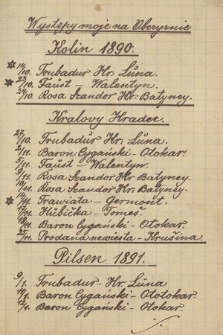 Występy moje na Obczyznie
Kolin 1890.
14/10. Trubadur Hr. Luna.
23/10. Faust Walentyn.
29/10. Rosa Szandor Hr. Batyney.
Kralovy Hradec.
Trubadur Hr. Luna.
Baron Cygański - Otokar.
Faust Walentyn.
Rosa Szandor Hr. Batyney.
Rosa Szandor Hr. Batyney.
Trawiata - Germont.
Hubička - Tomeš
Baron Cygański - Otokar.
Prodana newiesta - Krušina
Pilsen 1891.
9/1. Trubadur Hr. Luna
Baron Cygański - Ototokar.
Baron Cygański - Otokar.